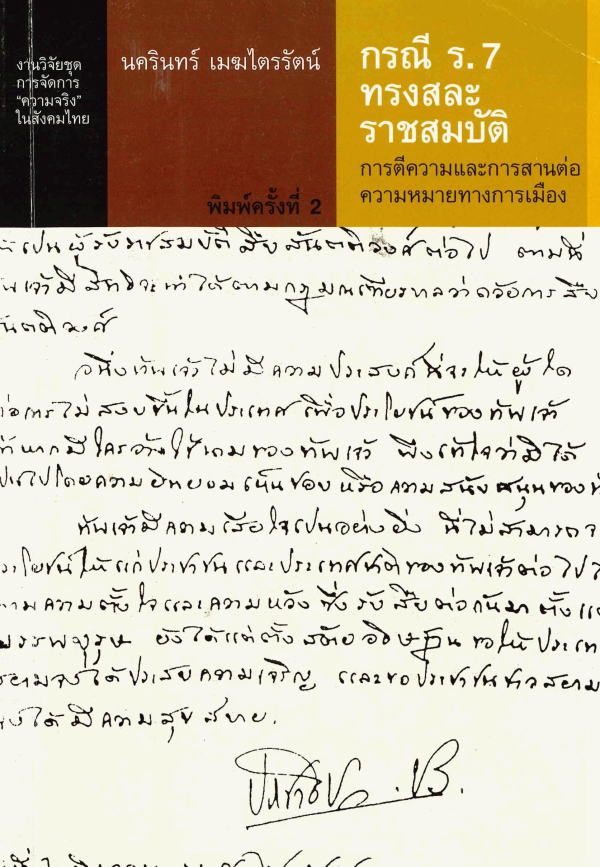 งานวิจัยชุด
การจัดการ
“ความจริง”
ในสังคมไทย
นครินทร์ เมฆไตรรัตน์
พิมพ์ครั้งที่ 2
กรณี ร. 7
ทรงสละ
ราชสมบัติ
การตีความและการสานต่อ
ความหมายทางการเมือง
เป็นผู้รับราชสมบัติสืบสันตติวงศ์ต่อไป ตามที่
เจ้ามีสิทธิจะทำได้ตามกฎมณเฑียรบาลว่าด้วยการสืบ
สันตติวงศ์
อนึ่งข้าพเจ้าไม่มีความประสงค์ที่จะให้ผู้ใด
ก่อการไม่สงบขึ้นในประเทศ เพื่อประโยชน์ของข้าพเจ้า
หากมีใครอ้างใช้นามของข้าพเจ้า พึงเข้าใจว่ามิได้
เป็นไปโดยความยินยอมเห็นชอบ หรือความสนับสนุนของ
ข้าพเจ้ามีความเสียใจเป็นอย่างยิ่ง ที่ไม่สามารถจ
ประโยชน์ให้แก่ประชาชนและประเทศชาติของข้าพเจ้าต่อไปไ
ตามความตั้งใจและความหวัง ซึ่งรับสืบต่อกันมาตั้งแ
บรรพบุรุษ ยังได้แต่ตั้งสัตย์อธิษฐาน ขอให้ประเท
สยามจงได้ประสบความเจริญ และขอประชาชนชาวสยาม
จงได้มีความสุขสบาย.
ประชาธิปก ปร.